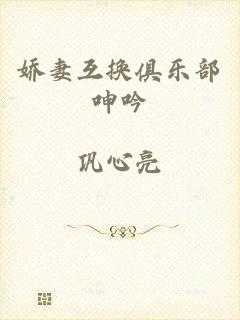 娇妻互换俱乐部
呻吟
巩心亮